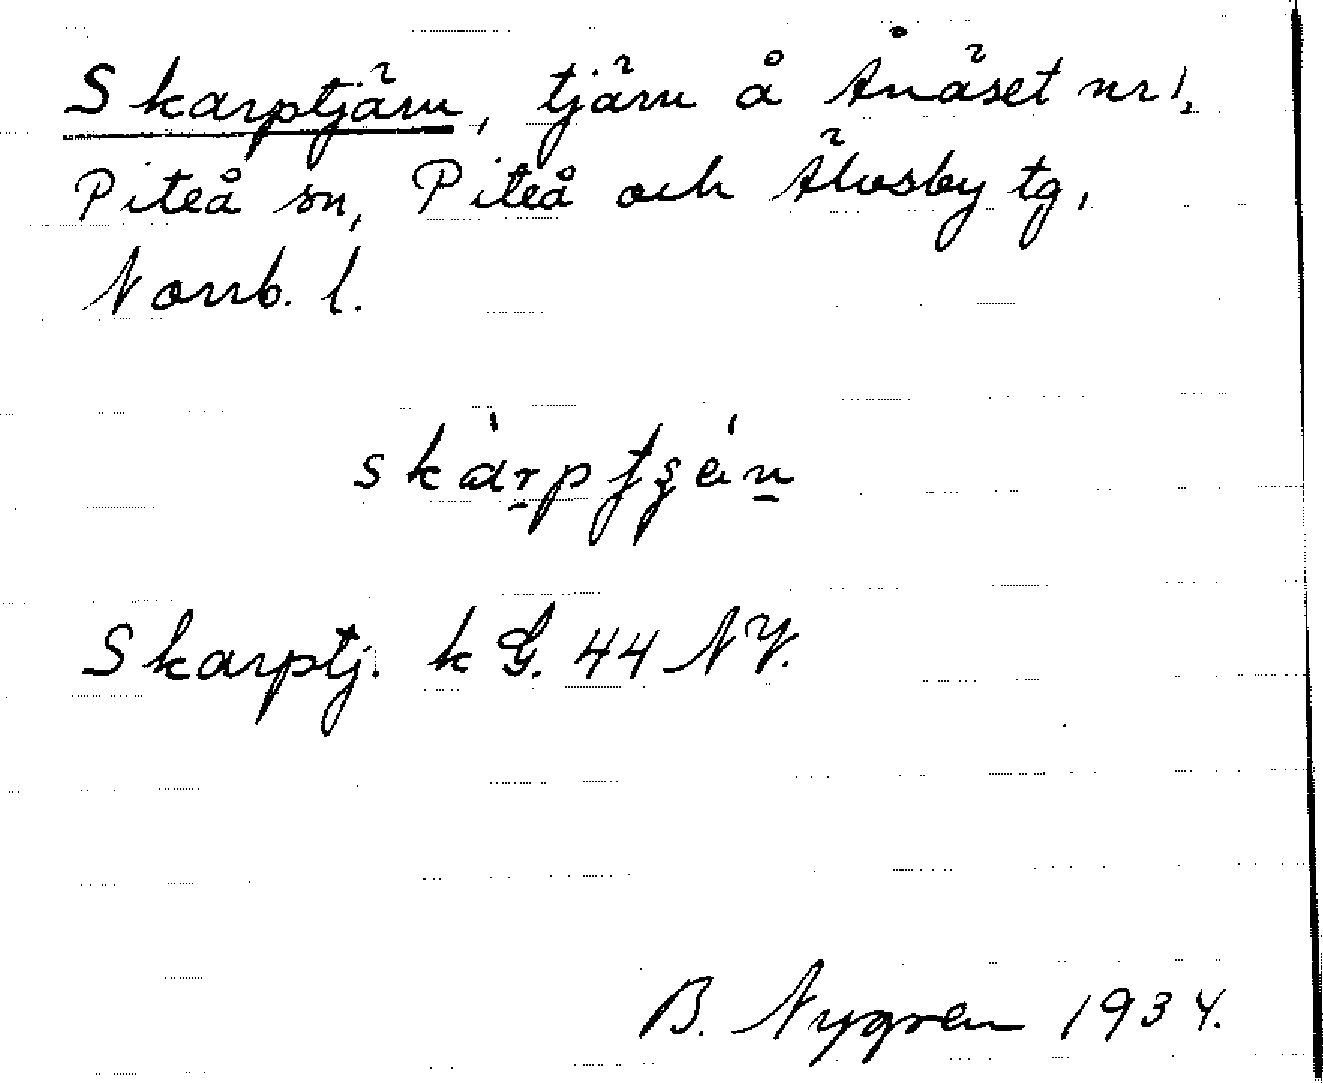 Skarptjärn, tjärn å Ånäset nr 1,
Piteå sn, Piteå och Älvsby tg,
Norrb. l.
Skarptj. k G. 44 NV.
B. Nygren 1934.